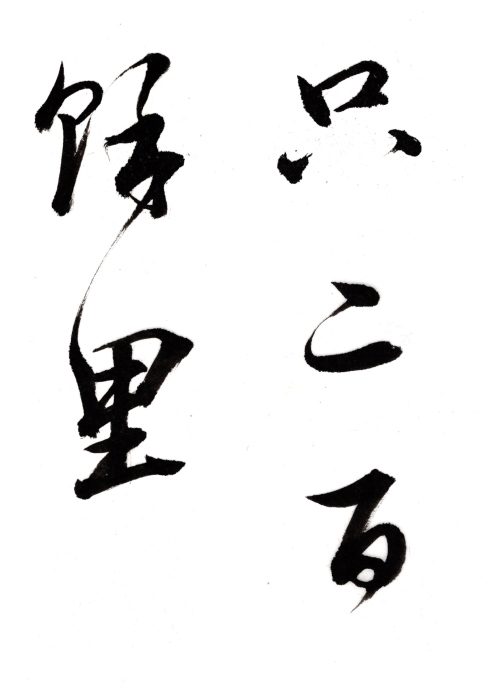 只二百
餘里